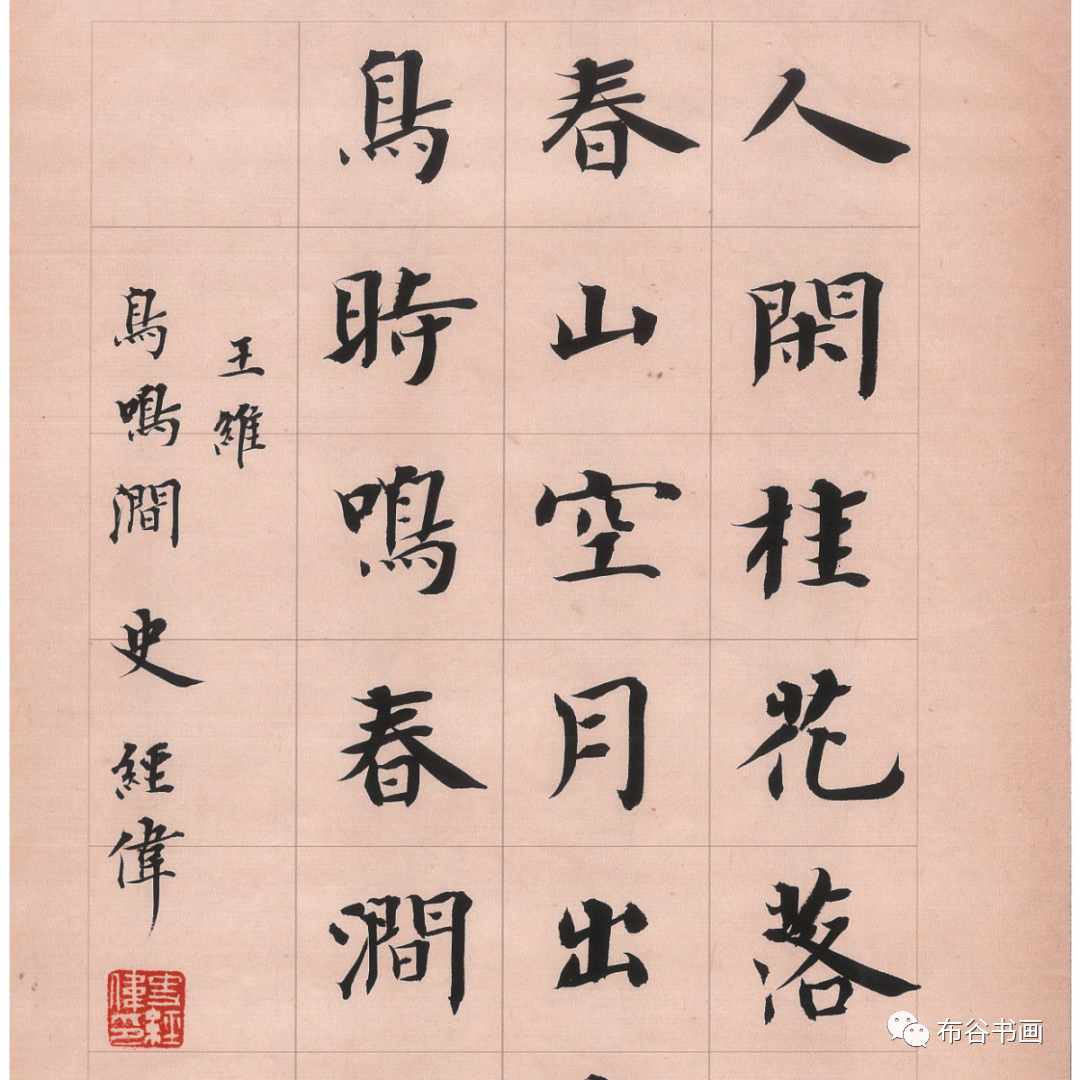 人閑桂花落
春山空月出
鳥時鳴春澗
王維
鳥鳴澗 史經偉
史經偉印
布谷书画